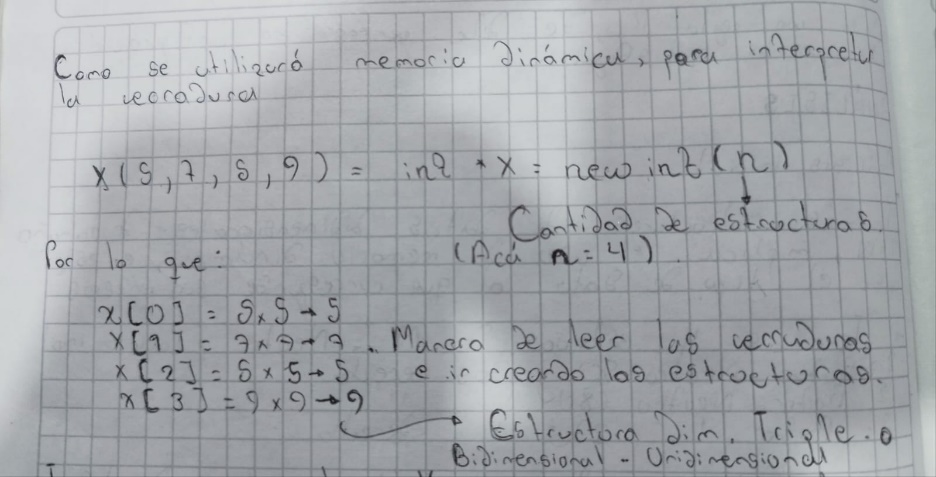 Como se utilizará memoria dinámica, para interpretar
la cerradura
X(5,7,5,9) = int * X = new int (n)
Cantidad de estructuras.
Por lo que: (Acá n=4).
x[0] = 5x5→5
x[1] = 7x7→7 . Manera de leer las cerraduras
x[2] = 5x5→5 e ir creando las estructuras.
x[3] = 9x9→9
Estructura Dim. Triple. o
Bidimensional - Unidimensional